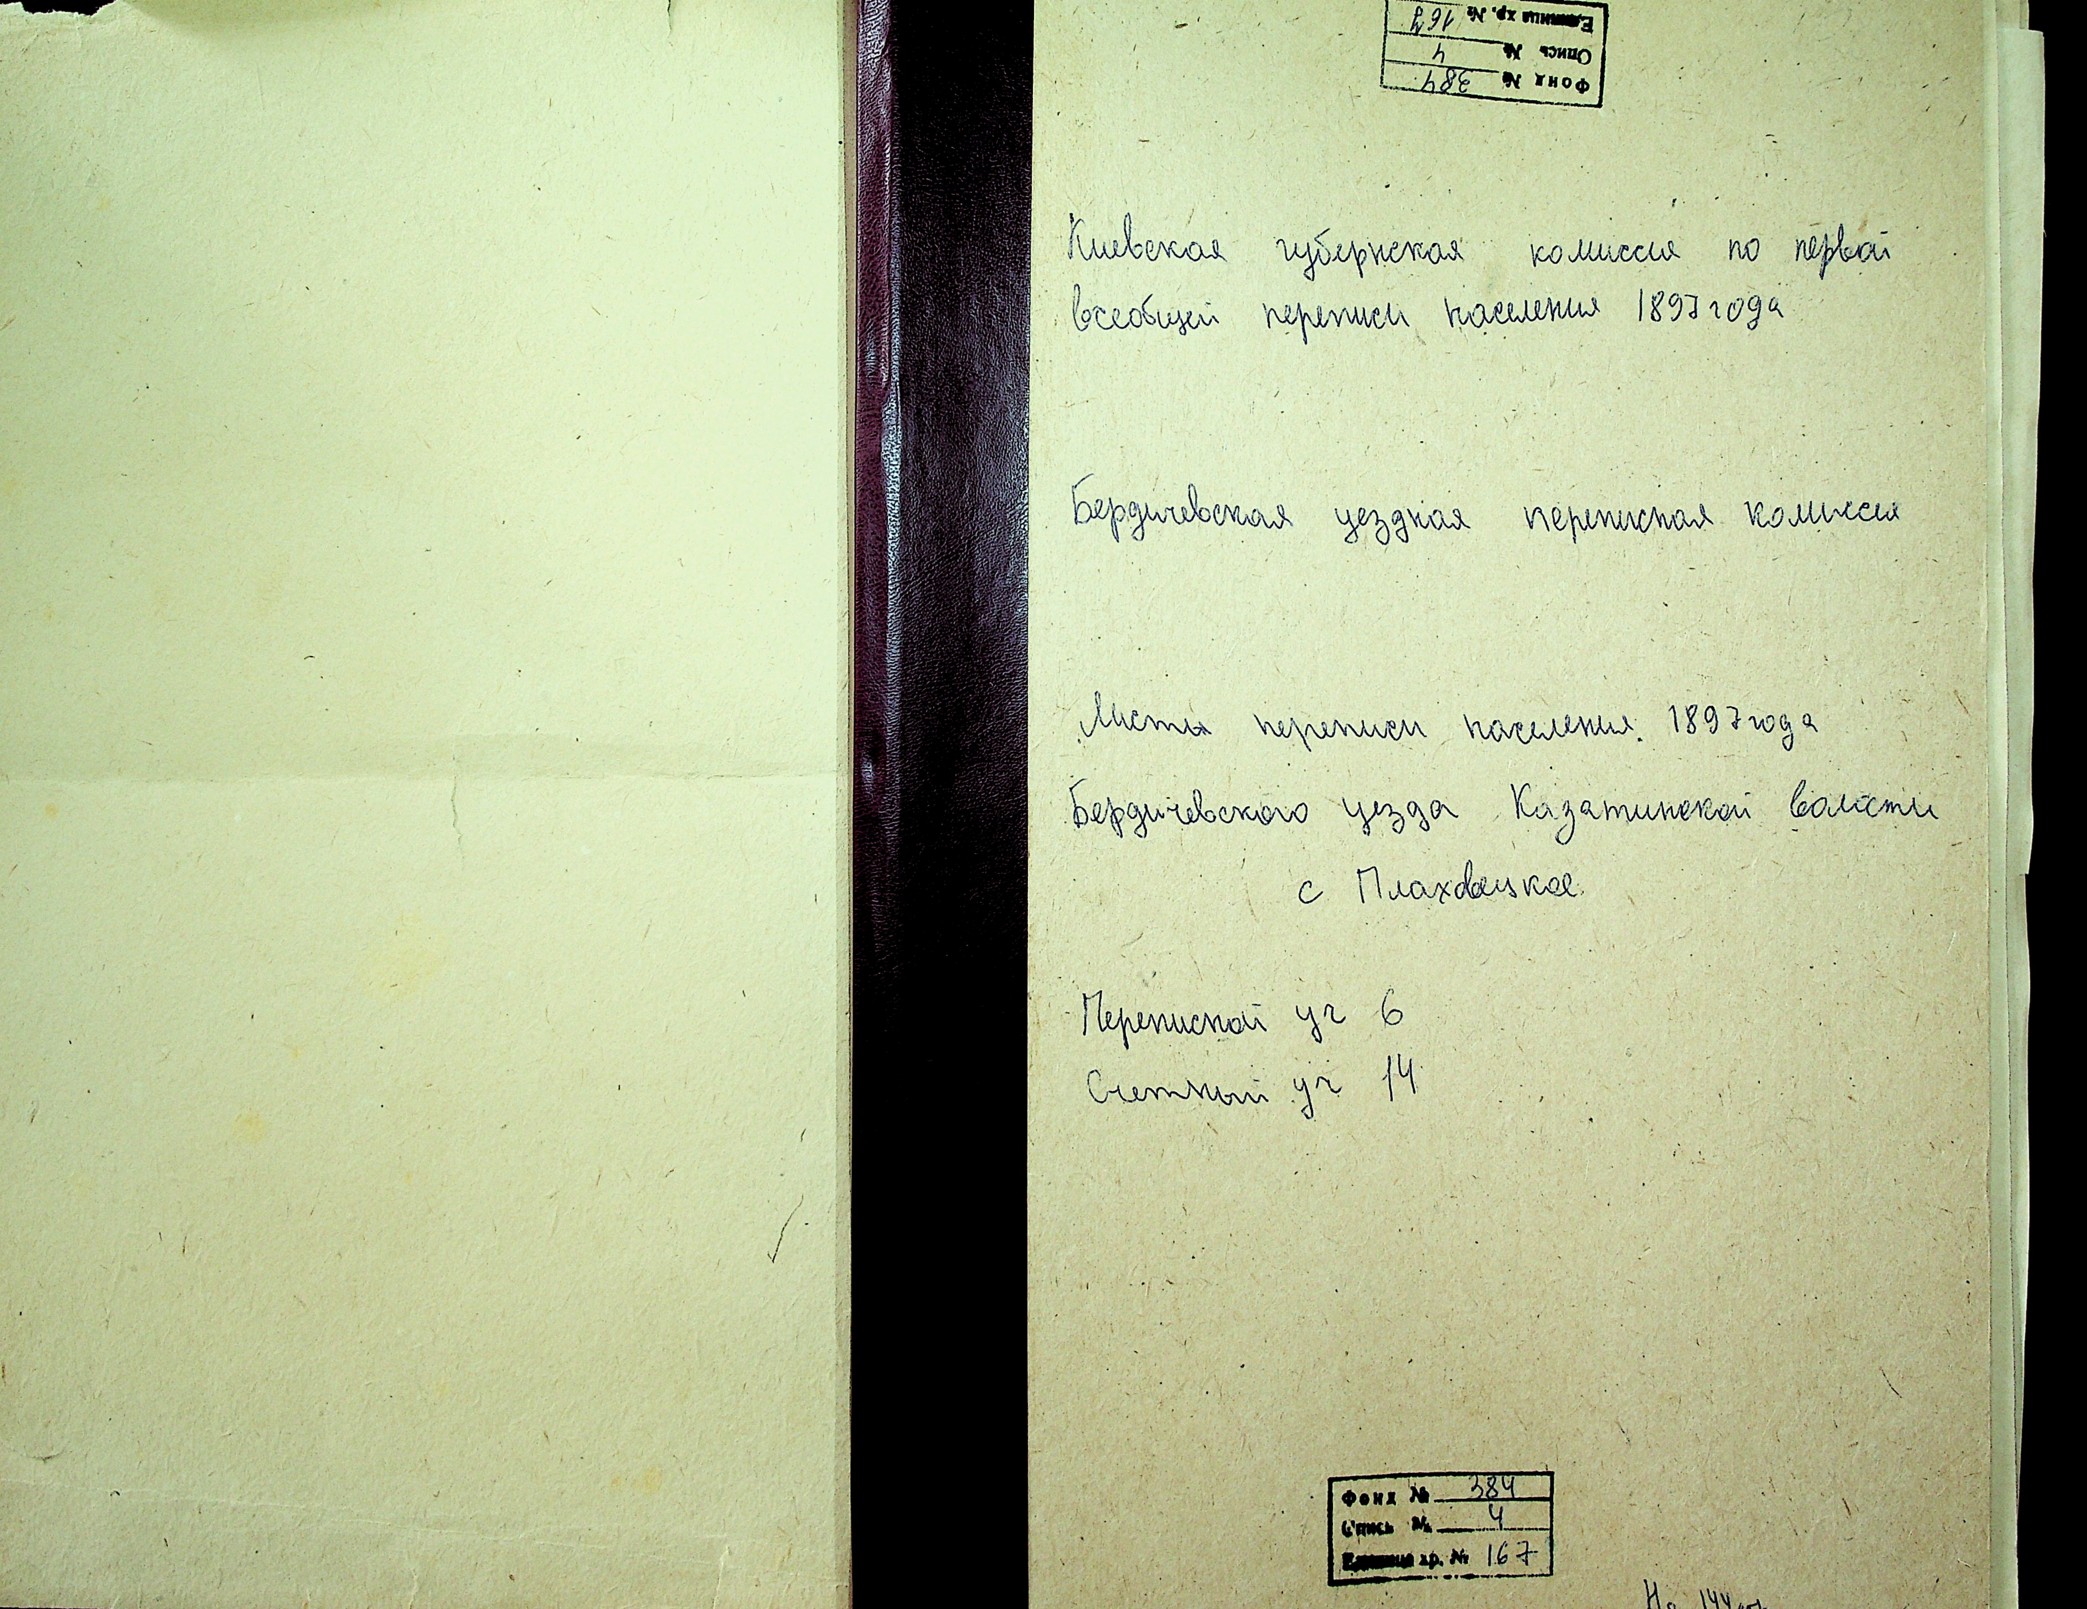 Фонд № 384
Опись № 4
Единица хр. № 167
Киевская губернская комиссия по первой
всеобщей переписи населения 1897 года
Бердичевская уездная переписная комиссия
Листы переписи населения 1897 года
Бердичевского уезда Казатинской волости
с Плаховецкое
Переписной уч 6
Счетный уч 14
Фонд № 384
Опись № 4
Единица хр. № 167
На 144